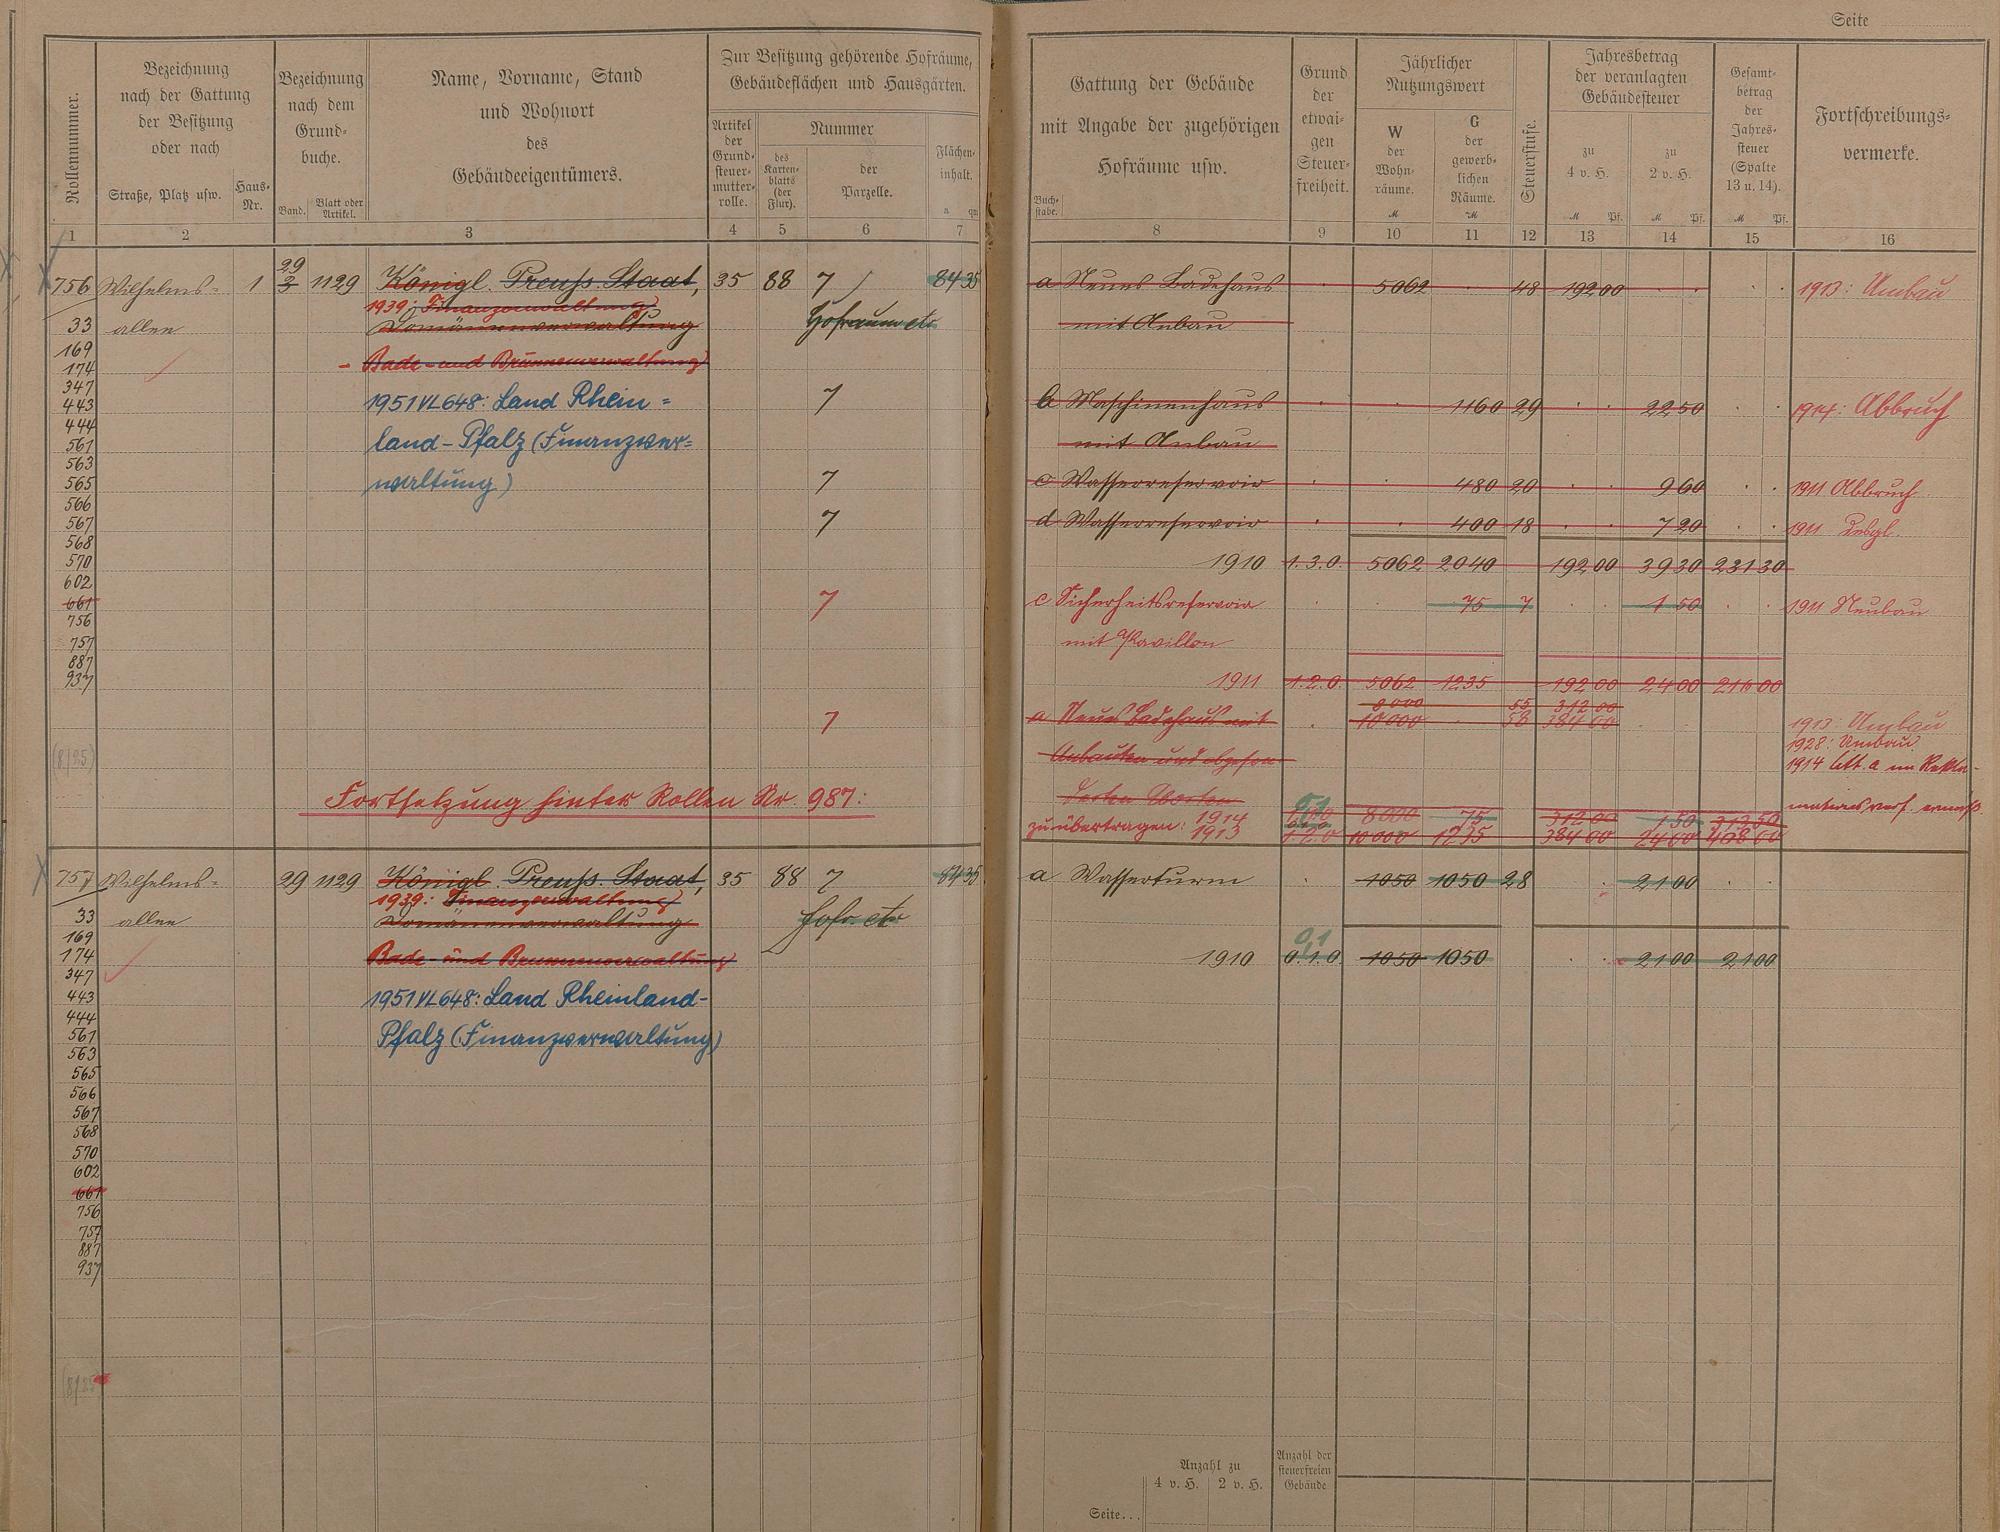 Seite
Rollennummer.
Bezeichnung
nach der Gattung
der Besitzung
oder nach
Straße, Platz usw.
Haus-
Nr.
Bezeichnung
nach dem
Grund-
buche.
Band.
Blatt oder
Artikel.
Name, Vorname, Stand
und Wohnort
des
Gebäudeeigentümers.
Zur Besitzung gehörende Hofräume,
Gebäudeflächen und Hausgärten.
Artikel
der
Grund-
steuer-
mutter-
rolle.
Nummer
des
Karten-
blatts
(der
Flur).
der
Parzelle.
Flächen-
inhalt.
a qm
1 2 3 4 5 6 7
Gattung der Gebäude
mit Angabe der zugehörigen
Hofräume usw.
Buch-
stabe.
Grund
der
etwai-
gen
Steuer-
freiheit.
Jährlicher
Nutzungswert
W
der
Wohn-
räume.
M
G
der
gewerb-
lichen
Räume.
M
Steuerstufe.
Jahresbetrag
der veranlagten
Gebäudesteuer
zu
4 v. H.
M Pf.
zu
2 v. H.
M Pf.
Gesamt-
betrag
der
Jahres-
steuer
(Spalte
13 u. 14).
M Pf.
Fortschreibungs-
vermerke.
8 9 10 11 12 13 14 15 16
756 Wilhelms- 1 29 1129 Königl. Preuß. Staat, 35 88 7 84 35
3
1939: Finanzverwaltung
33 allee Domänenverwaltung Hofraum etc
169
174 - Bade- und Brunnenverwaltung
347
443 1951 VL 648: Land Rhein- 7
444
561 land-Pfalz (Finanzver-
563
565 waltung) 7
566
567 7
568
570
602
661 7
756
757
887
937
7
(8/25)
Fortsetzung hinter Rollen Nr. 987:
a Neues Badehaus 5062 48 192 00 1913: Umbau
mit Anbau
b Maschinenhaus 1160 29 22 50 1914: Abbruch
mit Anbau
c Wasserreservoir 480 20 9 60 1911 Abbruch
d Wasserreservoir 400 18 7 20 1911 Desgl.
1910 1.3.0. 5062 2040 192 00 39 30 231 30
c Sicherheitsreservoir 75 7 1 50 1911 Neubau
mit Pavillon
1911 1.2.0. 5062 1235 192 00 24 00 216 00
8000 55 312 00
a Neues Badehaus mit 10000 58 384 00 1913: Umbau
1928: Umbau
Anbauten und abgeson- 1914 litt. a im Rekla-
derten Aborten
zu übertragen: 1914 8000 75 312 00 1 50 313 50
1913 1.2.0 10000 1235 384 00 24 00 408 00
757 Wilhelms- 29 1129 Königl. Preuß. Staat, 35 88 7 84 35
1939: Finanzverwaltung
33 allee Domänenverwaltung Hofr. etc
169
174 Bade- und Brunnenverwaltung
347
443 1951 VL 648: Land Rheinland-
444
561 Pfalz (Finanzverwaltung)
563
565
566
567
568
570
602
661
756
757
887
937
(8/25)
a Wasserturm 1050 1050 28 21 00
0,1
1910 0.1.0. 1050 1050 21 00 21 00
Anzahl zu
4 v. H. 2 v. H.
Anzahl der
steuerfreien
Gebäude
Seite...